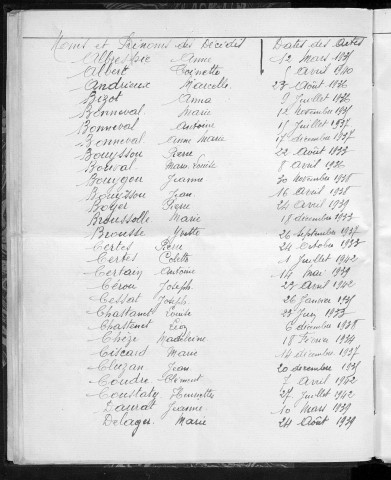 Noms et Prénoms des Décédés Dates des Actes
Albespic Anne 12 Mars 1931
Albert Toinette 8 avril 1940
Andrieux Marcelle 27 Août 1936
Bizot Anna 9 Juillet 1936
Benneval Marie 12 Novembre 1931
Bonneval Antoine 15 Juillet 1937
Bonneval Anne Marie 17 décembre 1937
Bouysson Pierre 22 Août 1933
Bouval Marie Louise 8 avril 1936
Bourgon Jeanne 30 Novembre 1938
Bouysson Jean 16 Avril 1938
Boyer Pierre 24 avril 1939
Broussolle Marie 18 décembre 1933
Brousse Yvette 26 Septembre 1937
Certes Pierre 24 Octobre 1933
Certes Colette 1 Juillet 1942
Certain Antoine 14 Mai 1939
Cérou Joseph 23 Avril 1942
Cessat Joseph 26 Janvier 1931
Chastanet Louise 23 Juin 1933
Chastanet Léon 6 décembre 1938
Chèze Madeleine 18 Février 1934
Ciscard Marie 14 décembre 1937
Cluzan Jean 20 décembre 1931
Coudre Clément 7 Avril 1942
Constaty Henriette 27 Juillet 1942
Daurat Jeanne 10 Mars 1939
Delager Marie 24 Août 1939